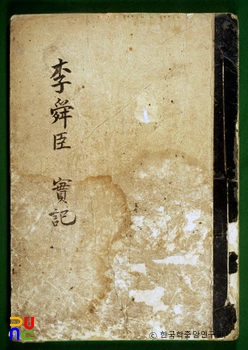 李舜臣 實記
© 한국학중앙연구원